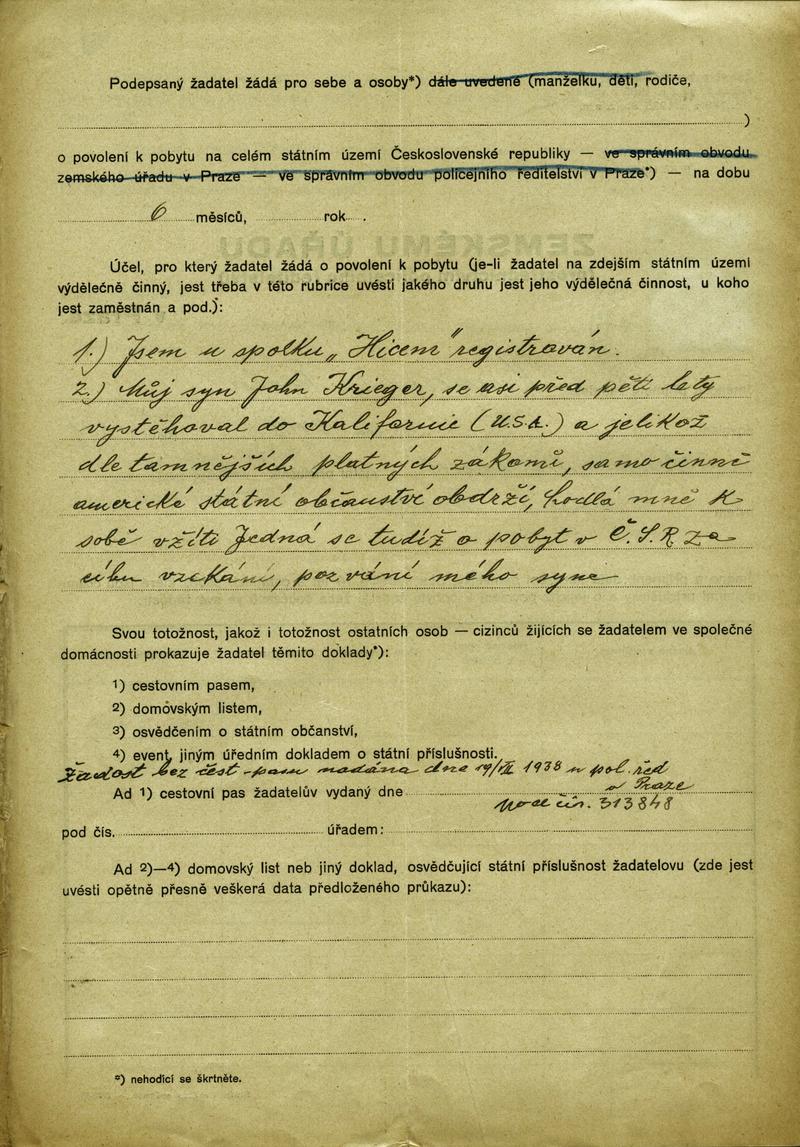 Podepsaný žadatel žádá pro sebe a osoby*) dále uvedené (manželku, děti, rodiče,
)
o povolení k pobytu na celém státním území Československé republiky — ve správním obvodu
zemského úřadu v Praze — ve správním obvodu policejního ředitelství v Praze*) — na dobu
6 měsíců, rok
Účel, pro který žadatel žádá o povolení k pobytu (je-li žadatel na zdejším státním území
výdělečně činný, jest třeba v této rubrice uvésti jakého druhu jest jeho výdělečná činnost, u koho
jest zaměstnán a pod.):
1.) Jsem u spolku „Hicem" registrován.
2.) Můj syn John Krieger, se asi před pěti léty
vystěhoval do Kalifornie (U.S.A.) a jelikož
dle tamnějších platných zákonů, samočinně
americké státní občanství obdrží, hodlá mně k
sobě vzíti Jedná se tudíž o pobyt v Č.S.R za
vyčkání, pozvání mého syna
Svou totožnost, jakož i totožnost ostatních osob — cizinců žijících se žadatelem ve společné
domácnosti prokazuje žadatel těmito doklady*):
1) cestovním pasem,
2) domovským listem,
3) osvědčením o státním občanství,
4) event. jiným úředním dokladem o státní příslušnosti.
Žádost bez cest. pasu podána dne 19/VII 1938 u pol. řed
v Praze
Ad 1) cestovní pas žadatelův vydaný dne
čís. 313848
pod čís. úřadem:
Ad 2)—4) domovský list neb jiný doklad, osvědčující státní příslušnost žadatelovu (zde jest
uvésti opětně přesně veškerá data předloženého průkazu):
*) nehodící se škrtněte.